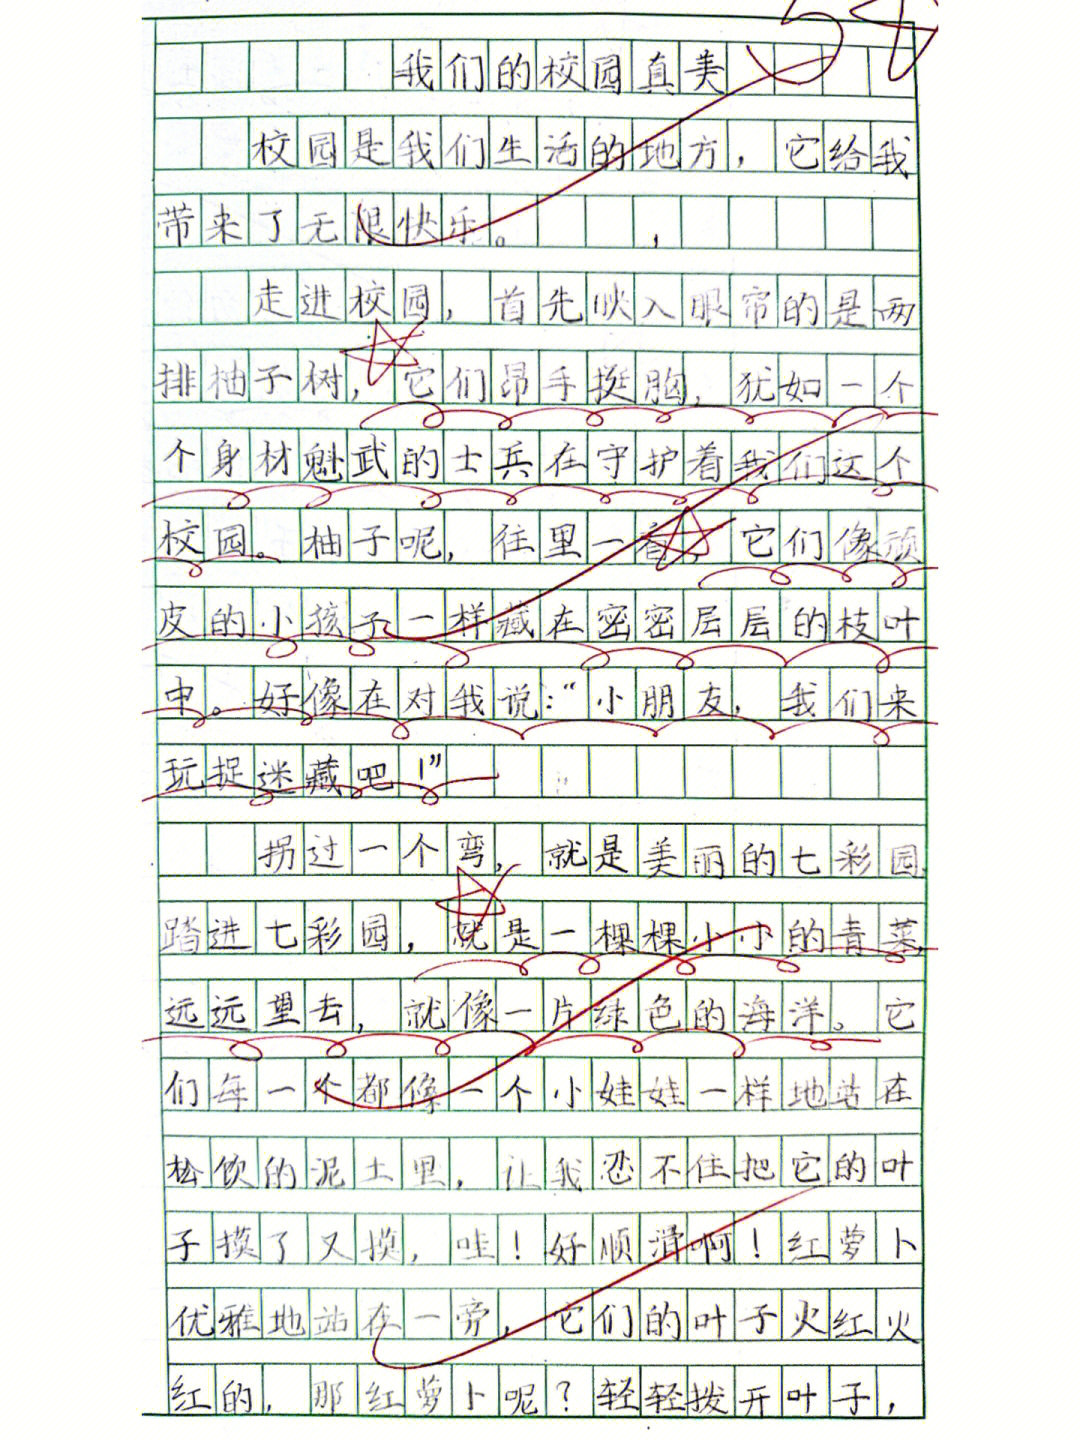 我们的校园真美
校园是我们生活的地方，它给我
带来了无限快乐。
走进校园，首先映入眼帘的是两
排柚子树，它们昂手挺胸，犹如一个
个身材魁武的士兵在守护着我们这个
校园。柚子呢，往里一看，它们像顽
皮的小孩子一样藏在密密层层的枝叶
中。好像在对我说：“小朋友，我们来
玩捉迷藏吧！”
拐过一个弯，就是美丽的七彩园，
踏进七彩园，就是一棵棵小小的青菜，
远远望去，就像一片绿色的海洋。它
们每一个都像一个小娃娃一样地站在
松饮的泥土里，让我忍不住把它的叶
子摸了又摸，哇！好顺滑啊！红萝卜
优雅地站在一旁，它们的叶子火红火
红的，那红萝卜呢？轻轻拨开叶子，